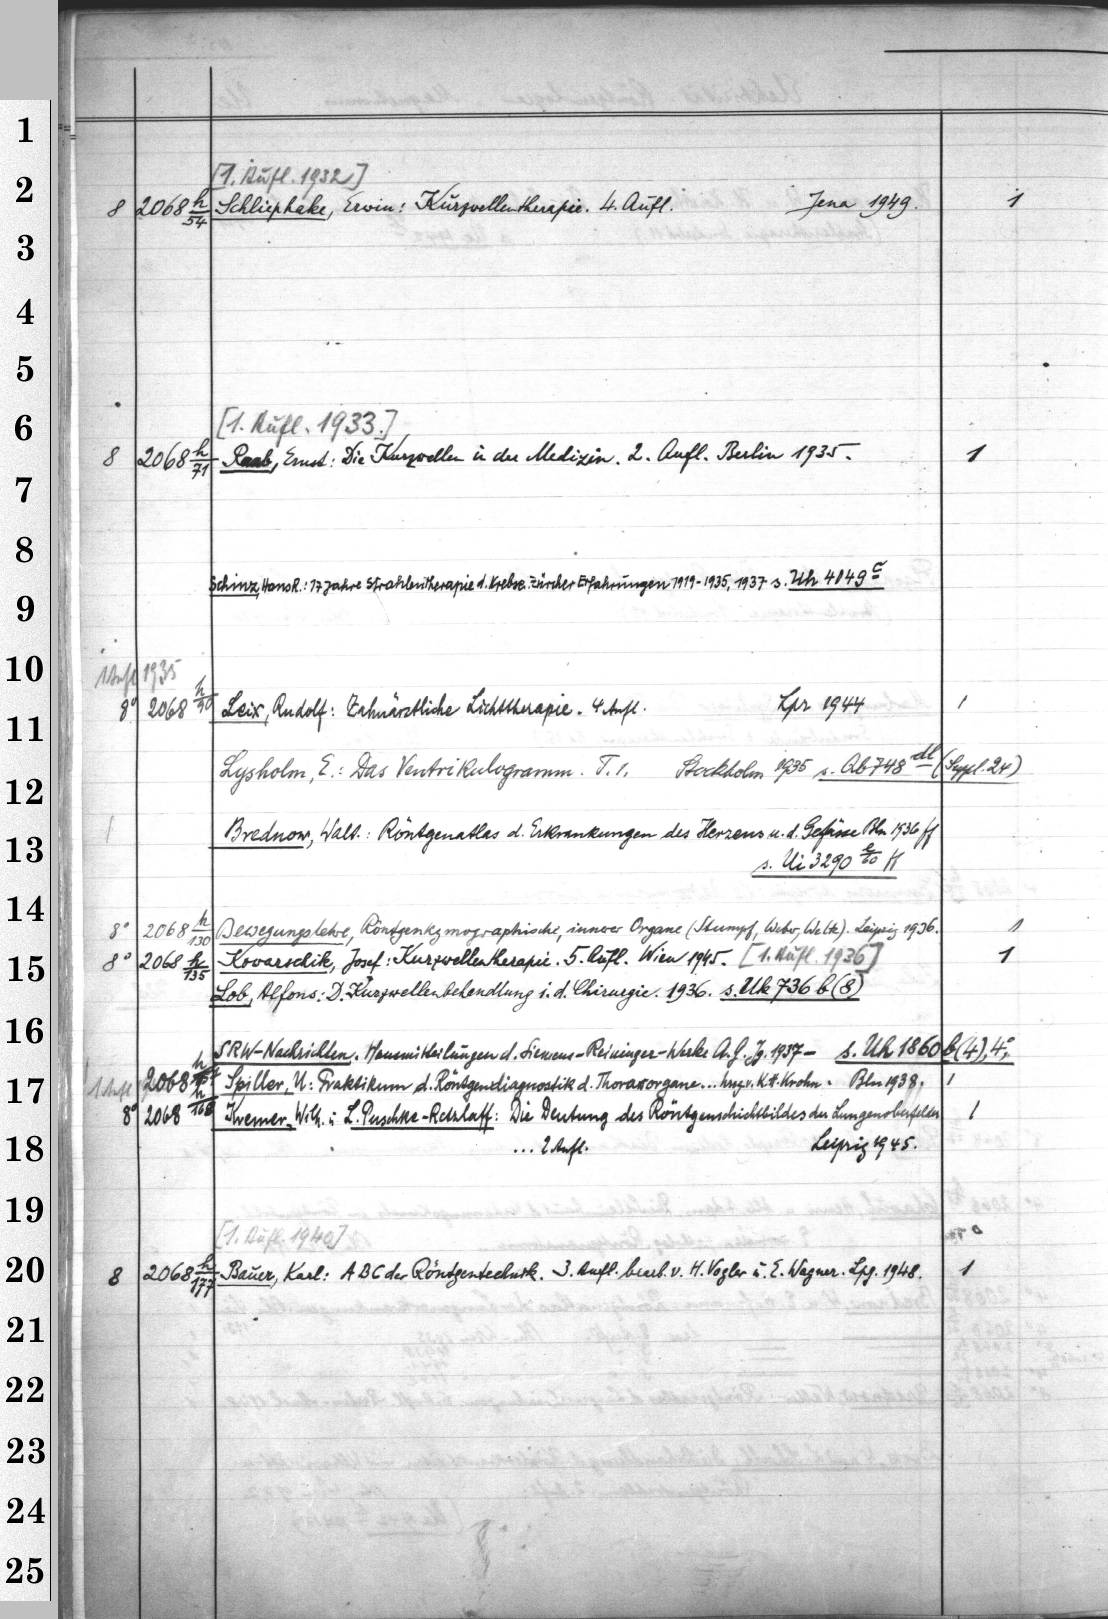 1
2
3
4
5
6
7
8
9
10
11
12
13
14
15
16
17
18
19
20
21
22
23
24
25
[1. Aufl. 1932]
8 2068 h/54 Schliephake, Erwin: Kurzwellentherapie. 4. Aufl. Jena 1949. 1
[1. Aufl. 1933.]
8 2068 h/71 Raab, Ernst: Die Kurzwellen in der Medizin. 2. Aufl. Berlin 1935. 1
Schinz, Hans R.: 17 Jahre Strahlentherapie d. Krebse. Zürcher Erfahrungen 1919-1935, 1937 s. Uh 4049 c
1 Aufl 1935
8° 2068 h/90 Leix, Rudolf: Zahnärztliche Lichttherapie. 4 Aufl. Lpz 1944 1
Lysholm, E.: Das Ventrikulogramm. T. 1. Stockholm 1935 s. Ab 748 dl (Suppl. 24)
Brednow, Walt.: Röntgenatlas d. Erkrankungen des Herzens u. d. Gefässe Bln 1936 ff
s. Ui 3290 e/60 ff
8° 2068 h/130 Bewegungslehre, Röntgenkymographische, innerer Organe (Stumpf, Weber, Weltz). Leipzig 1936. 1
8° 2068 h/135 Kowarschik, Josef: Kurzwellentherapie. 5. Aufl. Wien 1945. [1. Aufl. 1936] 1
Lob, Alfons: D. Kurzwellenbehandlung i. d. Chirurgie. 1936. s. Uk 736 b (8)
SRW-Nachrichten. Hausmitteilungen d. Siemens-Reiniger-Werke A.G. Jg. 1937- s. Uh 1860 b (4), 4°;
1 Aufl 2068 h Spiller, U: Praktikum d. Röntgendiagnostik d. Thoraxorgane... hrsg. v. K. H. Krohn. Bln 1938. 1
8° 2068 h/168 Kremer, Wilh. u. L. Puschke-Retzlaff: Die Deutung des Röntgenschichtbildes der Lungenoberfelder 1
... 2 Aufl. Leipzig 1945.
[1. Aufl. 1940]
8 2068 h/177 Bauer, Karl: ABC der Röntgentechnik. 3. Aufl. bearb. v. H. Vogler u. E. Wagner. Lpg. 1948. 1